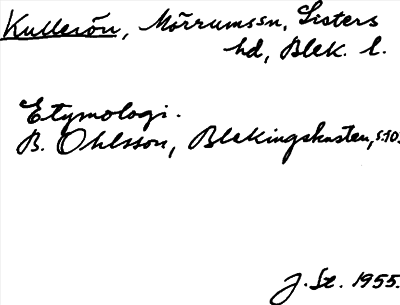 Kullerön, Mörrumssn, Listers
hd, Blek. l.
Etymologi.
B. Ohlsson, Blekingskusten, s. 10.
J. Sz. 1955.